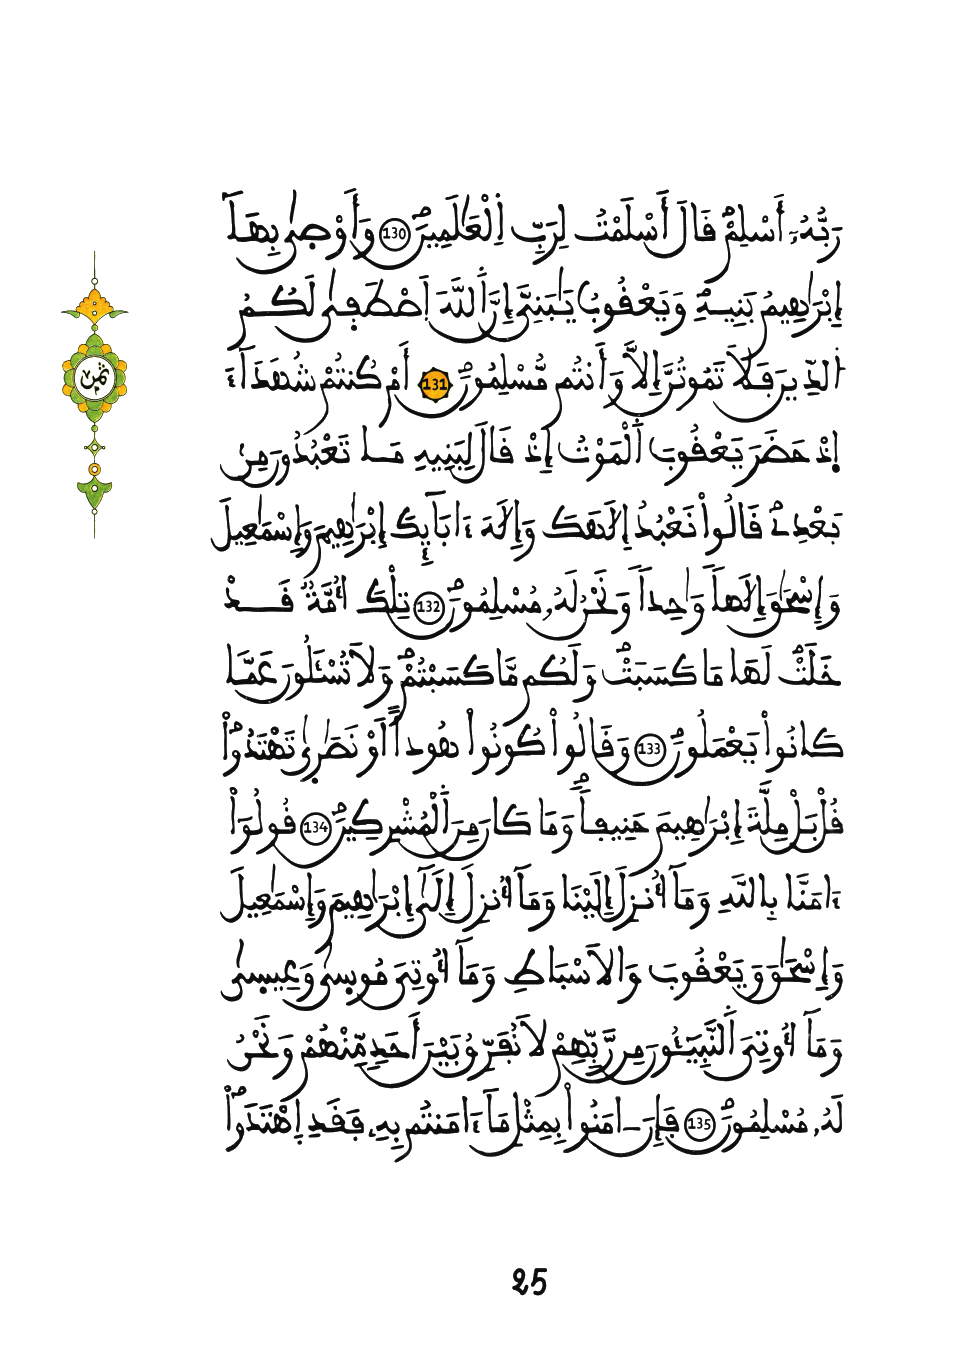 رَبُّهُۥٓ أَسْلِمْ قَالَ أَسْلَمْتُ لِرَبِّ اِ۬لْعَٰلَمِينَ 130 وَأَوْص۪يٰ بِهَآ
إِبْرَٰهِيمُ بَنِيهِ وَيَعْقُوبُ يَٰبَنِيَّ إِنَّ اَ۬للَّهَ اَ۪صْطَف۪يٰ لَكُمُ
اُ۬لدِّينَ فَلَا تَمُوتُنَّ إِلَّا وَأَنتُم مُّسْلِمُونَ 131 أَمْ كُنتُمْ شُهَدَآءَ
اِ۪ذْ حَضَرَ يَعْقُوبَ اَ۬لْمَوْتُ إِذْ قَالَ لِبَنِيهِ مَا تَعْبُدُونَ مِنۢ
بَعْدِے قَالُواْ نَعْبُدُ إِلَٰهَكَ وَإِلَٰهَ ءَابَآئِكَ إِبْرَٰهِيمَ وَإِسْمَٰعِيلَ
وَإِسْحَٰقَ إِلَٰهاٗ وَٰحِداٗ وَنَحْنُ لَهُۥ مُسْلِمُونَ 132 تِلْكَ أُمَّةٞ قَدْ
خَلَتْ لَهَا مَا كَسَبَتْ وَلَكُم مَّا كَسَبْتُمْ وَلَا تُسْـَٔلُونَ عَمَّا
كَانُواْ يَعْمَلُونَ 133 وَقَالُواْ كُونُواْ هُوداً أَوْ نَصَٰر۪يٰ تَهْتَدُواْ
قُلْ بَلْ مِلَّةَ إِبْرَٰهِيمَ حَنِيفاٗ وَمَا كَانَ مِنَ اَ۬لْمُشْرِكِينَ 134 قُولُوٓاْ
ءَامَنَّا بِاللَّهِ وَمَآ أُنزِلَ إِلَيْنَا وَمَآ أُنزِلَ إِلَىٰٓ إِبْرَٰهِيمَ وَإِسْمَٰعِيلَ
وَإِسْحَٰقَ وَيَعْقُوبَ وَالَاسْبَاطِ وَمَآ أُوتِيَ مُوس۪يٰ وَعِيس۪يٰ
وَمَآ أُوتِيَ اَ۬لنَّبِيٓـُٔونَ مِن رَّبِّهِمْ لَا نُفَرِّقُ بَيْنَ أَحَدٖ مِّنْهُمْ وَنَحْنُ
لَهُۥ مُسْلِمُونَ 135 فَإِنَ اٰمَنُواْ بِمِثْلِ مَآ ءَامَنتُم بِهِۦ فَقَدِ اِ۪هْتَدَواْ
ثمن
25